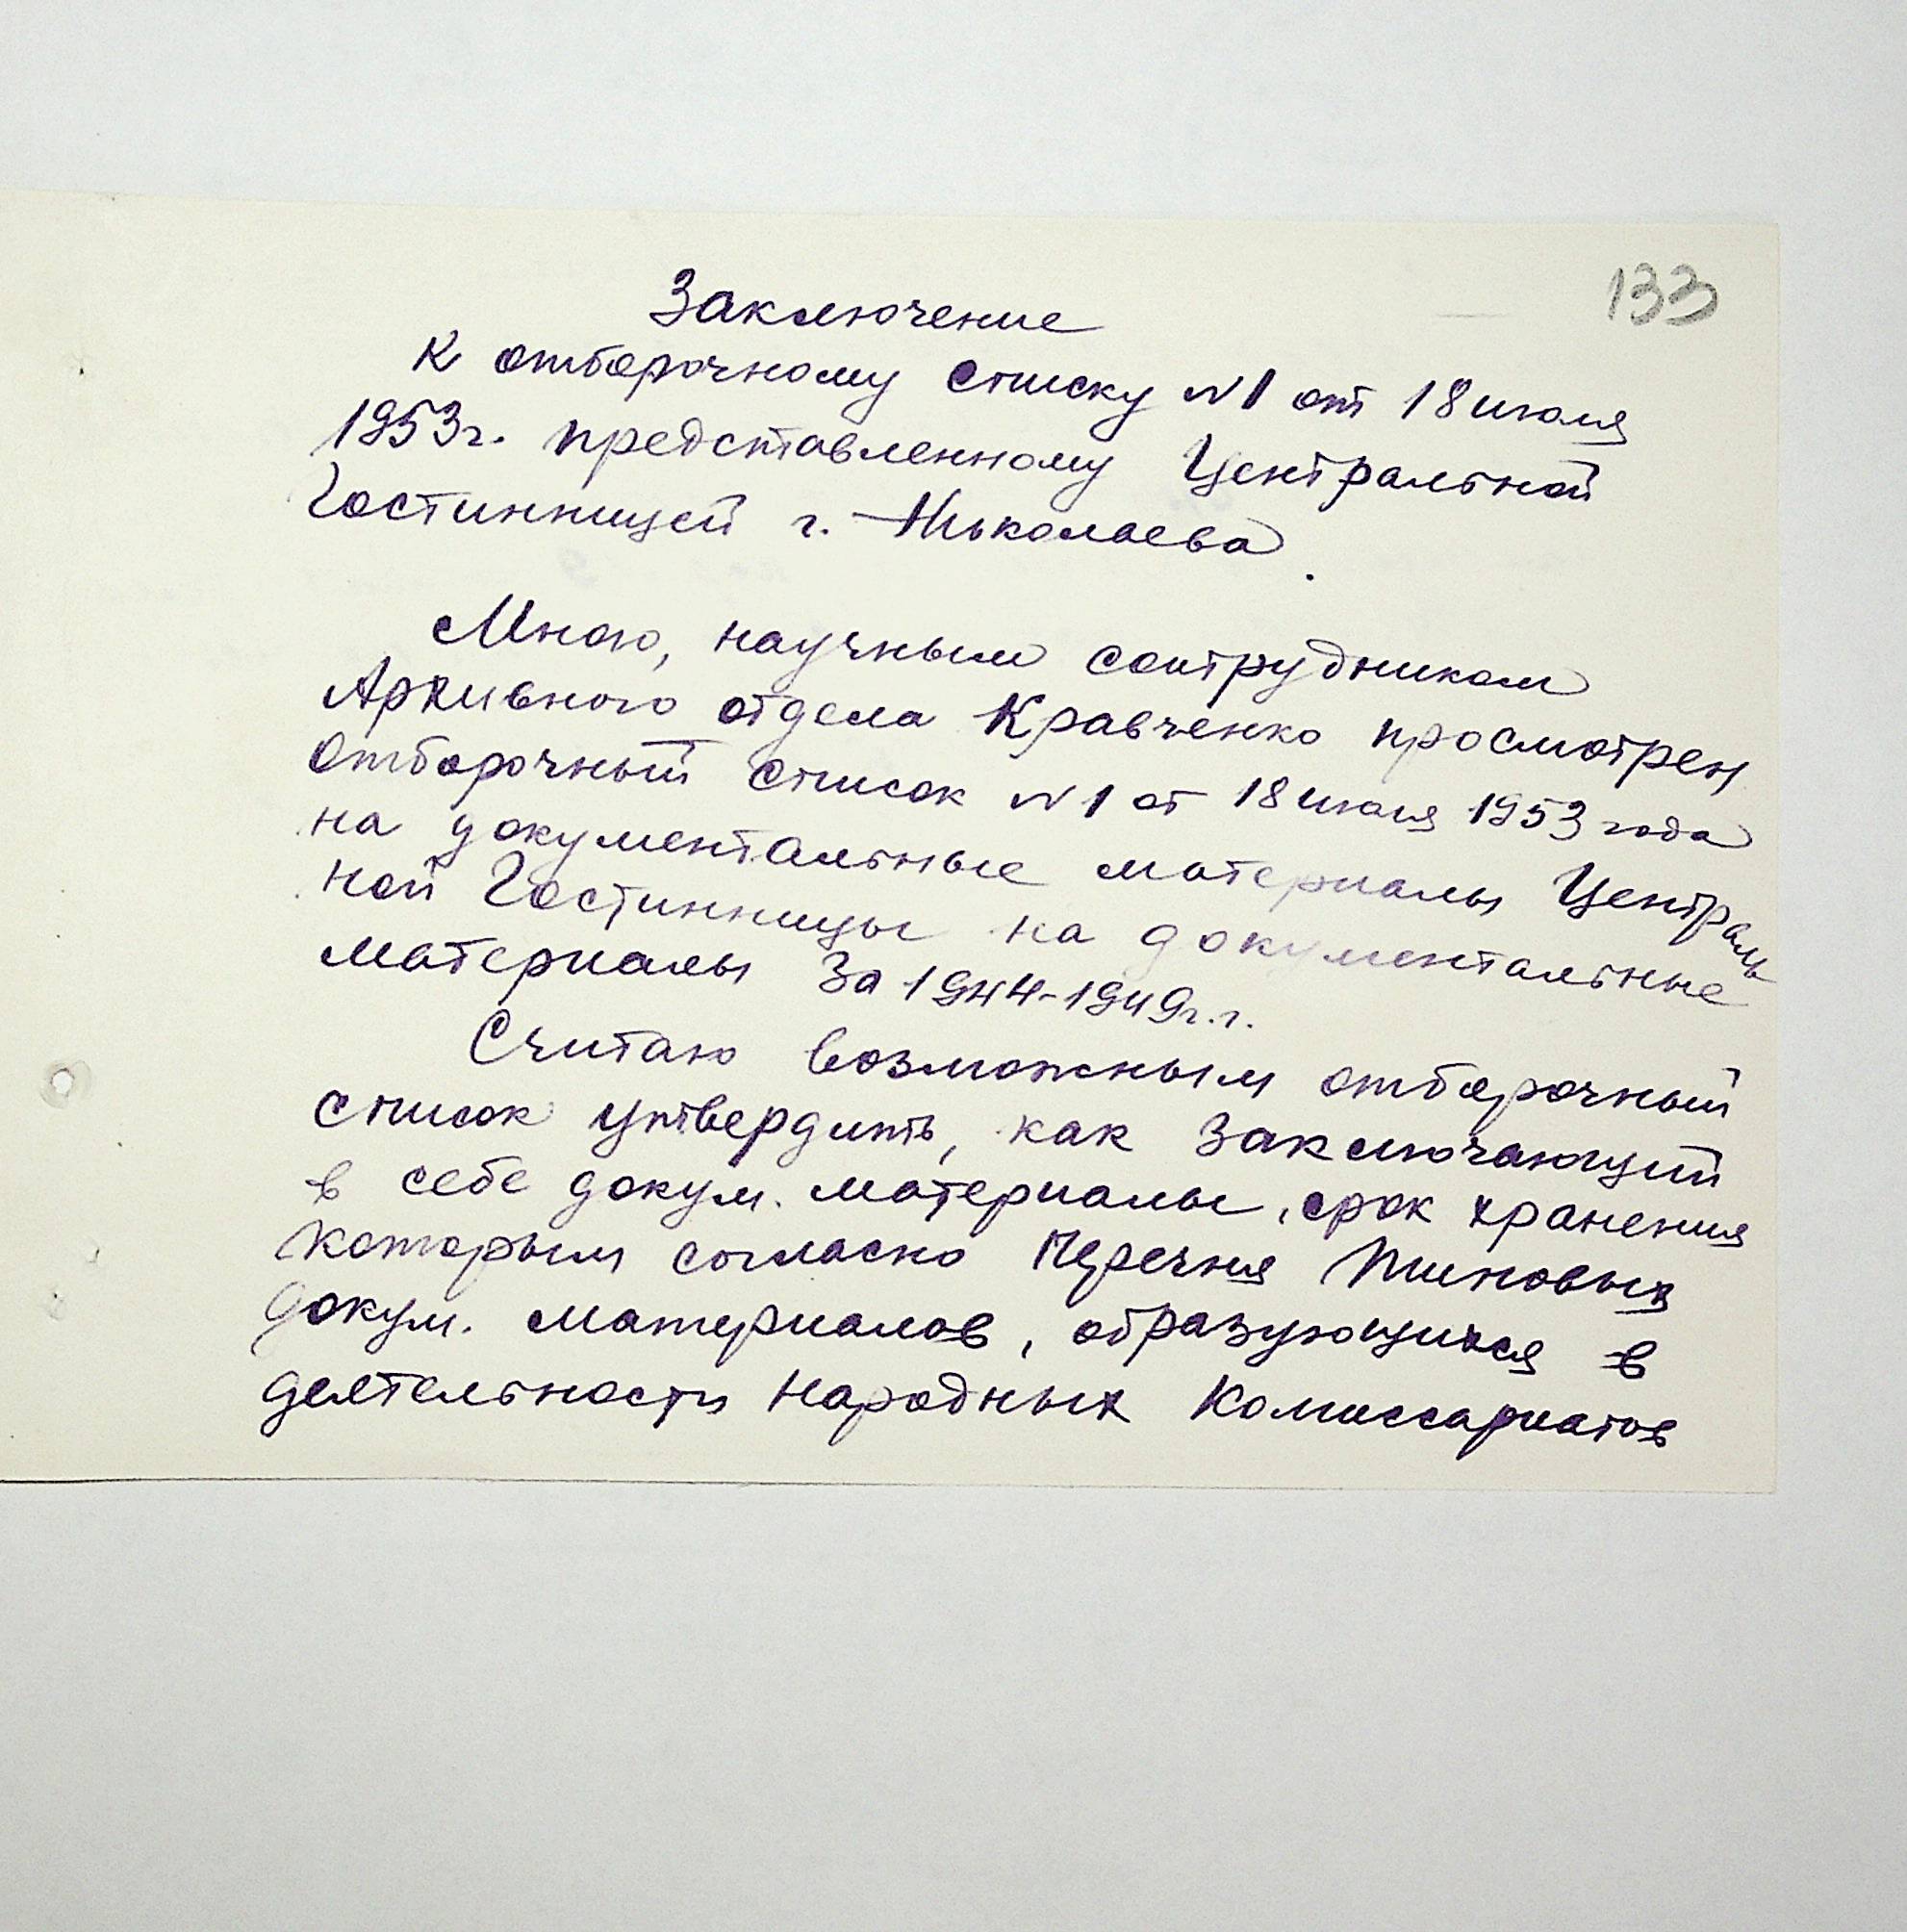 133
Заключение
к отборочному списку N1 от 18 июля
1953г. представленному Центральной
Гостинницей г. Николаева.
Мною, научным сотрудником
Архивного отдела Кравченко просмотрен
отборочный список N1 от 18 июля 1953 года
на документальные материалы Централь
ной Гостинницы на документальные
материалы за 1944-1949г.г.
Считаю возможным отборочный
список утвердить, как заключающий
в себе докум. материалы, срок хранения
которым согласно Перечня типовых
докум. материалов, образующихся в
деятельности Народных Комиссариатов